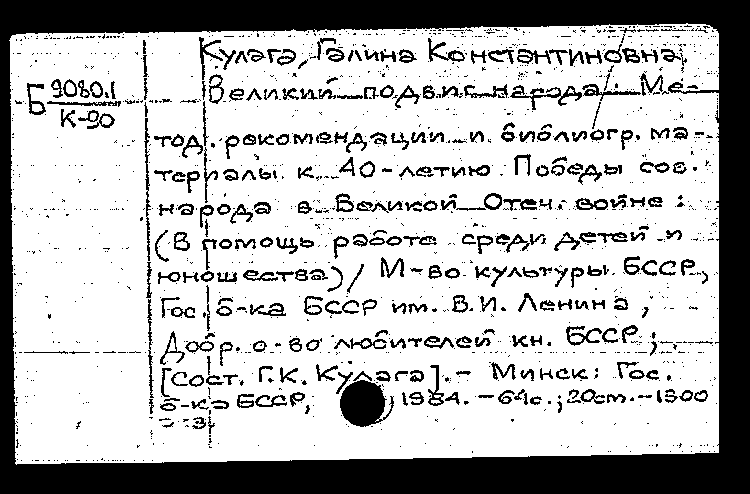 Кулага, Галина Константиновна.
Б 9080.1
К-90
Великий подвиг народа: Ме-
тод. рекомендации и библиогр. ма-
териалы к 40-летию Победы сов.
народа в Великой Отеч. войне:
(В помощь работе среди детей и
юношества) / М-во культуры БССР,
Гос. б-ка БССР им. В.И. Ленина,
Добр. о-во любителей кн. БССР;
[Сост. Г.К. Кулага].- Минск: Гос.
б-ка БССР, 1984. -64с.; 20см.-1300
экз.